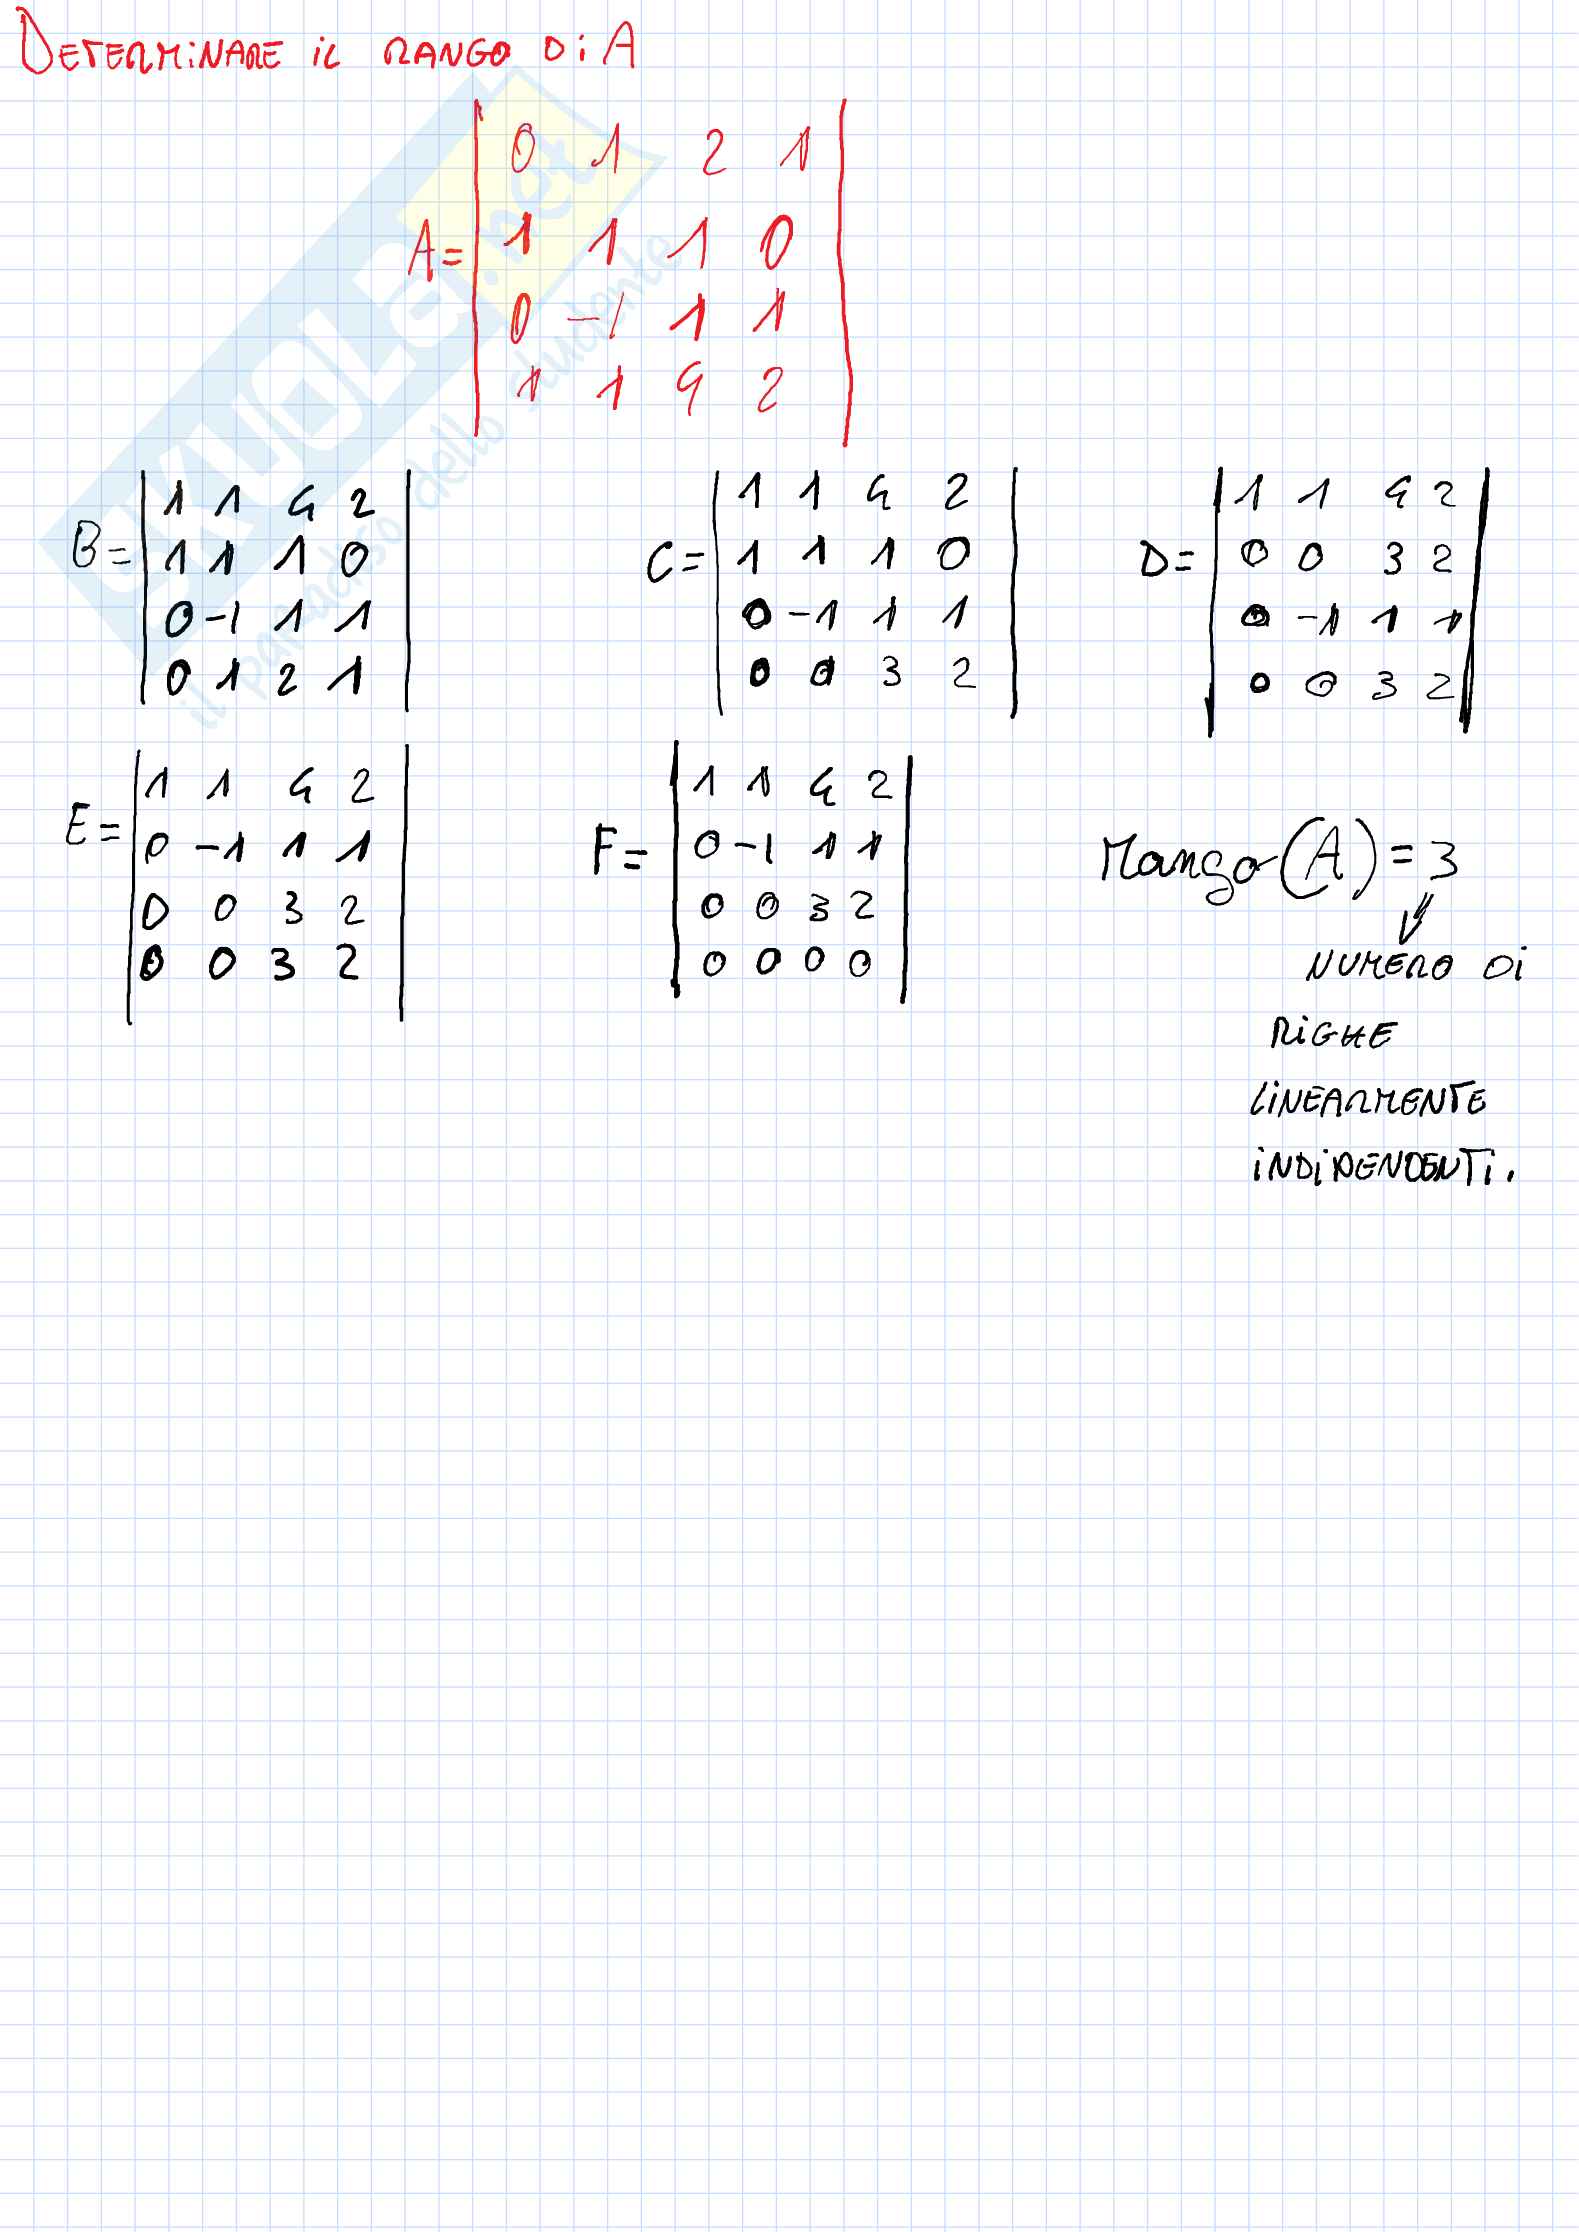 DETERMINARE IL RANGO DI A
A= | 0 1 2 1 |
| 1 1 1 0 |
| 0 -1 1 1 |
| 1 1 4 2 |
B= | 1 1 4 2 |
| 1 1 1 0 |
| 0 -1 1 1 |
| 0 1 2 1 |
C= | 1 1 4 2 |
| 1 1 1 0 |
| 0 -1 1 1 |
| 0 0 3 2 |
D= | 1 1 4 2 |
| 0 0 3 2 |
| 0 -1 1 1 |
| 0 0 3 2 |
E= | 1 1 4 2 |
| 0 -1 1 1 |
| 0 0 3 2 |
| 0 0 3 2 |
F= | 1 1 4 2 |
| 0 -1 1 1 |
| 0 0 3 2 |
| 0 0 0 0 |
Rango (A) = 3
NUMERO DI
RIGHE
LINEARMENTE
INDIPENDENTI.
SKUOLa.net
il paradiso dello studente